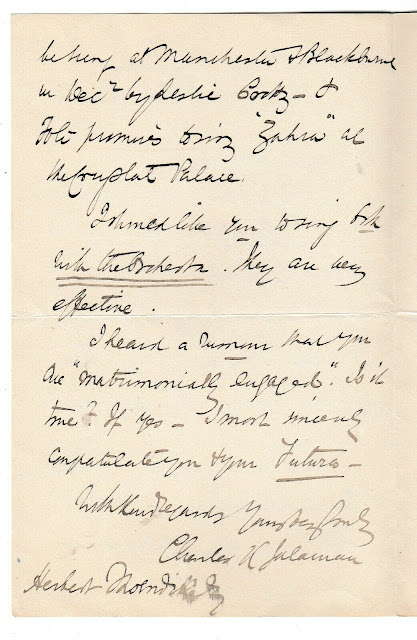 be sung at Manchester & Blackburne
in Decr by Leslie Crotty — &
Foli promises to sing "Zahra" at
the Crystal Palace.
I should like you to sing both
with the Orchestra. They are very
effective.
I heard a rumour that you
are "matrimonially engaged". Is it
true? If yes — I most sincerely
congratulate you & your Future —
With kind regards Yours very truly
Charles K Salaman
Herbert